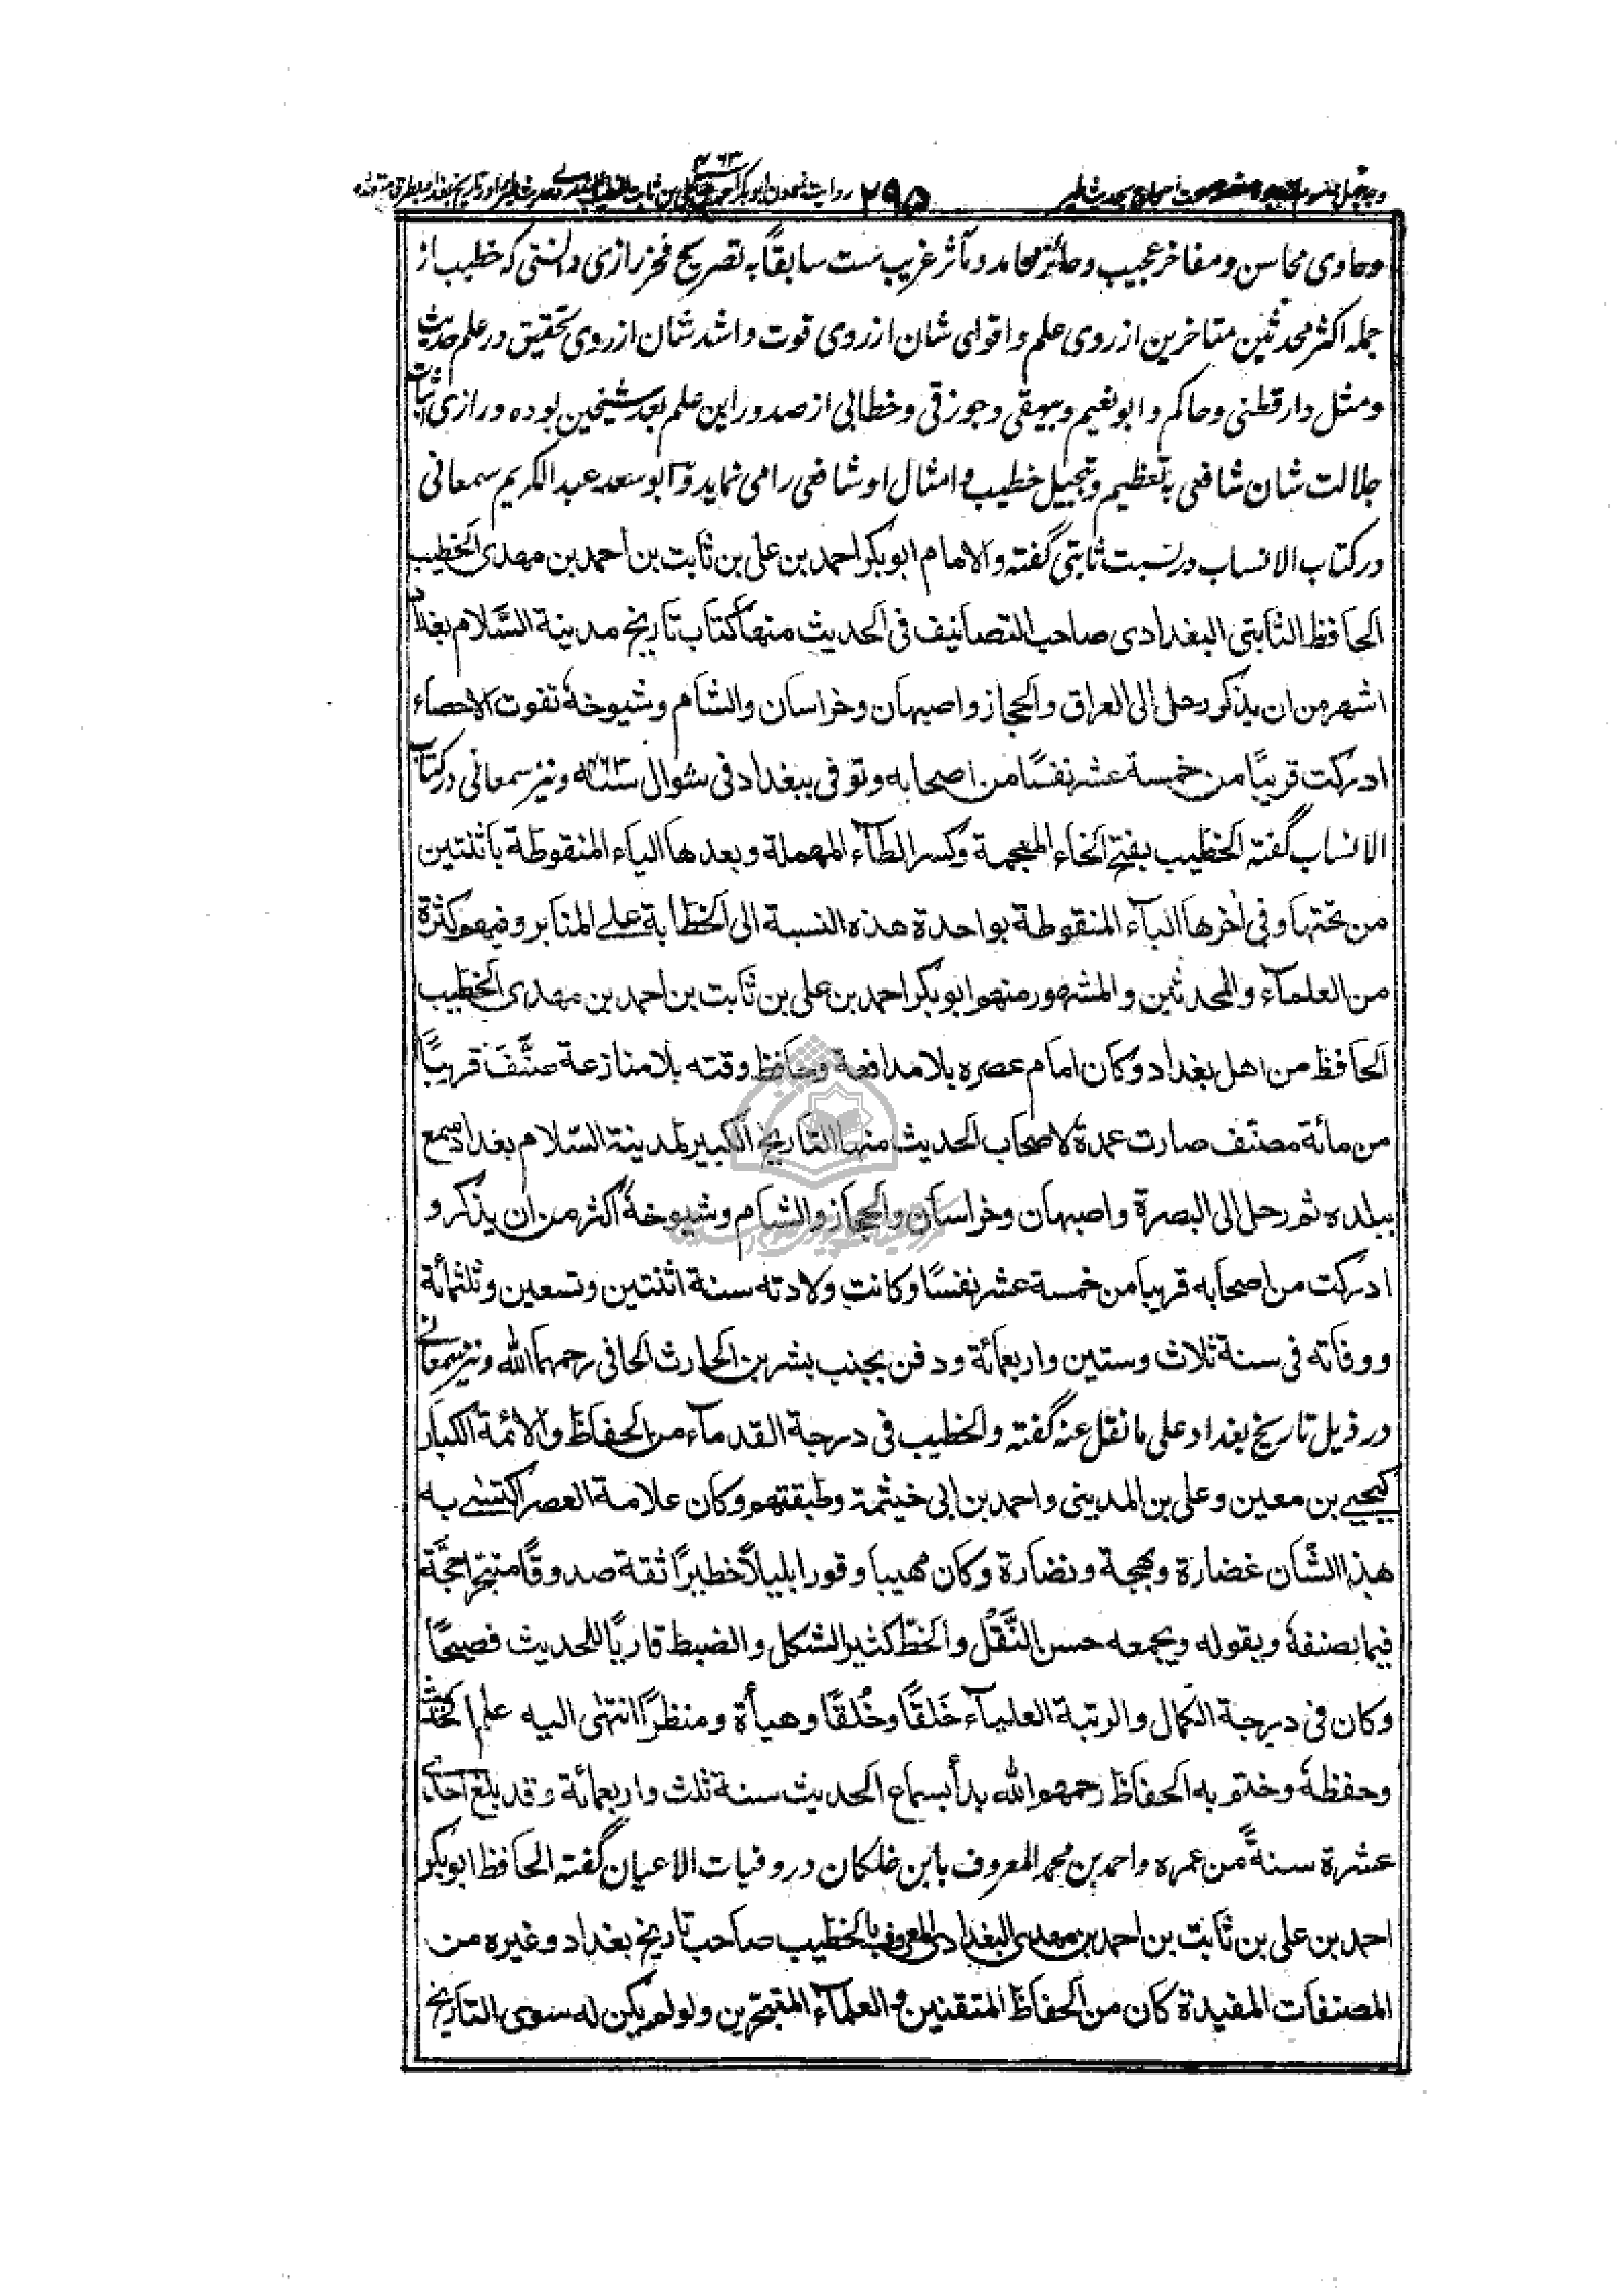 ۲۹۵
وحاوی محاسن و مفاخر عجیب و حائز محامد و مآثر غریب ست سابقاً به تصریح فخر رازی دانستی که خطیب از
جمله اکثر محدثین متاخرین از روی علم و اقوای شان از روی قوت و اشد شان از روی تحقیق در علم حدیث
و مثل دارقطنی و حاکم و ابو نعیم و بیهقی و جوزقی و خطابی از صدور این علم بعد شیخین بوده و رازی اثبات
جلالت شان شافعی به تعظیم و تبجیل خطیب و امثال او شافعی را می نماید و ابو سعد عبد الکریم سمعانی
در کتاب الانساب در نسبت ثابتی گفته و الامام ابو بکر احمد بن علی بن ثابت بن احمد بن مهدی الخطیب
الحافظ الثابتی البغدادی صاحب التصانیف فی الحدیث منها کتاب تاریخ مدینة السّلام بغداد
اشهر من ان یذکر رحل الی العراق و الحجاز و اصبهان و خراسان و الشام و شیوخهٗ تفوت الاحصاء
ادرکت قریبًا من خمسة عشر نفسًا من اصحابه و توفی ببغداد فی شوال سنة ۴۶۳ و نیز سمعانی در کتاب
الانساب گفته الخطیب بفتح الخاء المعجمة و کسر الطآء المهملة و بعدها الیاء المنقوطة باثنتین
من تحتها و فی اٰخرها البآء المنقوطة بواحدة هذه النسبة الی الخطابة علے المنابر و فیهم کثرة
من العلمآء و المحدثین و المشهور منهم ابو بکر احمد بن علی بن ثابت بن احمد بن مهدی الخطیب
الحافظ من اهل بغداد و کان امام عصره بلا مدافعة و حافظ وقته بلا منازعة صنَّف قریبًا
من مائة مصنف صارت عمدة لاصحاب الحدیث منها التاریخ الکبیر لمدینة السّلام بغداد سمع
ببلده ثم رحل الی البصرة و اصبهان و خراسان و الحجاز و الشام و شیوخهٗ اکثر من ان یذکر و
ادرکت من اصحابه قریبا من خمسة عشر نفسًا و کانت ولادته سنة اثنتین و تسعین و ثلثمائة
و وفاته فی سنة ثلاث و ستین و اربعمائة و دفن بجنب بشر بن الحارث الحافی رحمهما الله و نیز سمعانی
در ذیل تاریخ بغداد علی ما نقل عنه گفته و الخطیب فی درجة القدمآء من الحفاظ و الائمة الکبار
کیحیے بن معین و علی بن المدینی و احمد بن ابی خیثمة و طبقتهم و کان علامة العصر اکتسے به
هذا الشّان غضارة و بهجة و نضارة و کان مهیبا وقورا نبیلاً خطیرًا ثقة صدوقًا متبحّرا حجَّة
فیما یصنفهٗ و یقوله و یجمعه حسن النَّقل و الخطّ کثیر الشکل و الضبط قاریًا للحدیث فصیحًا
و کان فی درجة الکمال و الرتبة العلیآء خَلقًا و خُلقًا و هیأة و منظرًا انتهی الیه علم الحدیث
و حفظهٗ و ختم به الحفاظ رحمهم الله بدأ بسماع الحدیث سنة ثلث و اربعمائة و قد بلغ احدے
عشرة سنةً من عمره و احمد بن محمد المعروف بابن خلکان در وفیات الاعیان گفته الحافظ ابو بکر
احمد بن علی بن ثابت بن احمد بن مهدی البغدادی المعروف بالخطیب صاحب تاریخ بغداد و غیره من
المصنفات المفیدة کان من الحفاظ المتقنین و العلمآء المتبحرین و لو لم یکن له سوی التاریخ